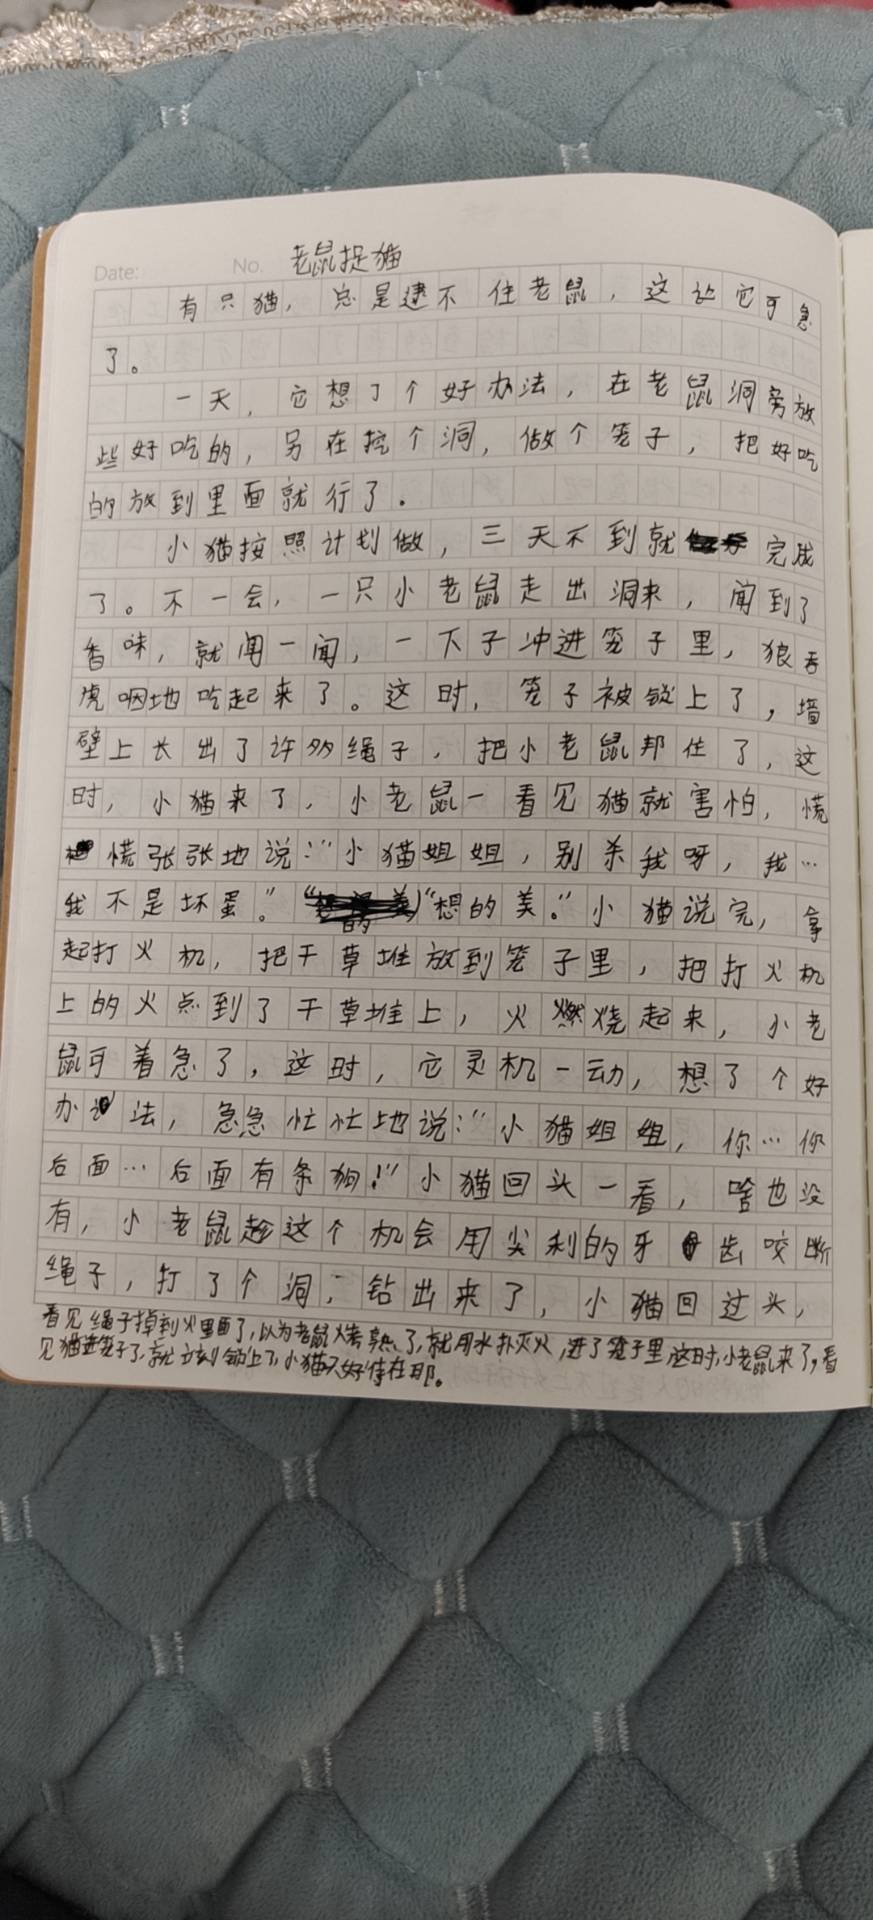 Date: No. 老鼠捉猫
有只猫，总是逮不住老鼠，这让它可急
了。
一天，它想了个好办法，在老鼠洞旁放
些好吃的，另在挖个洞，做个笼子，把好吃
的放到里面就行了。
小猫按照计划做，三天不到就完成
了。不一会，一只小老鼠走出洞来，闻到了
香味，就闻一闻，一下子冲进笼子里，狼吞
虎咽地吃起来了。这时，笼子被锁上了，墙
壁上长出了许多绳子，把小老鼠邦住了，这
时，小猫来了，小老鼠一看见猫就害怕，慌
慌张张地说：“小猫姐姐，别杀我呀，我…
我不是坏蛋。”“想的美。”小猫说完，拿
起打火机，把干草堆放到笼子里，把打火机
上的火点到了干草堆上，火燃烧起来，小老
鼠可着急了，这时，它灵机一动，想了个好
办法，急急忙忙地说：“小猫姐姐，你…你
后面…后面有条狗！”小猫回头一看，啥也没
有，小老鼠趁这个机会用尖利的牙齿咬断
绳子，打了个洞，钻出来了，小猫回过头，
看见绳子掉到火里面了，以为老鼠烤熟了，就用水扑灭火，进了笼子里，这时，小老鼠来了，看
见猫进笼子了，就立刻锁上了，小猫只好待在那。